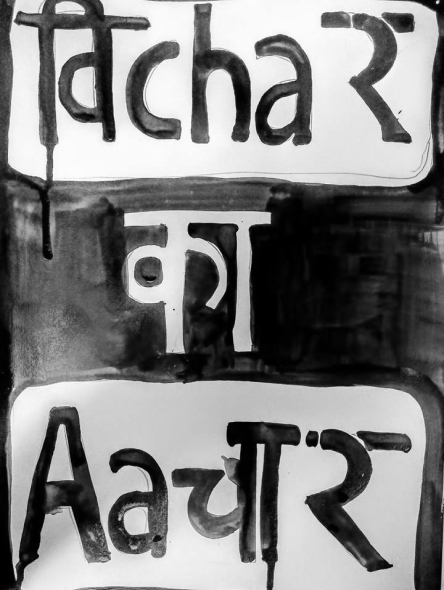 विchaर
का
Aaचार